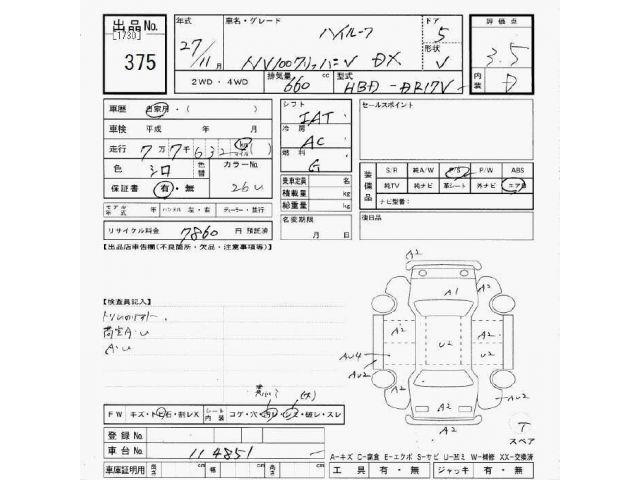 出品No.
[1730]
375
年式
27/11月
車名・グレード
ハイルーフ
NV100クリッパーV DX
ドア
5
形状
V
評価点
3.5
内装
D
2WD・4WD
排気量
660 cc
型式
HBD-DR17V
車歴 自家用・( )
車検 平成 年 月
走行 7万7千632 km マイル ( )
色 シロ 色替
カラーNo.
26U
保証書 有・無
モデル年式 年 ハンドル 左・右 ディーラー・並行
リサイクル料金 7860円 預託済
シフト
IAT
冷房
AC
燃料
G
乗車定員 名
積載量 kg
総重量 kg
名変期限
月 日
セールスポイント
装備品
S/R 純A/W P/S P/W ABS
純TV 純ナビ 革シート 外ナビ エアB
ナビ型番:
後日品
【出品店車告欄(不良箇所・欠品・注意事項等)】
【検査員記入】
荷室A・U
A・U
FW キズ・トビ石・割レX シート内装 コゲ・穴・汚レ・シミ・破レ・スレ
登録No.
車台No. 114851
車庫証明用 長さ cm 幅 cm 高さ cm
A2
A1
A2
A2
A2
U2
A2
AU4
AU2
A2
A2
AU2
A2
A2
T
スペア
A-キズ C-腐食 E-エクボ S-サビ U-凹ミ W-補修 XX-交換済
工具 有・無 ジャッキ 有・無